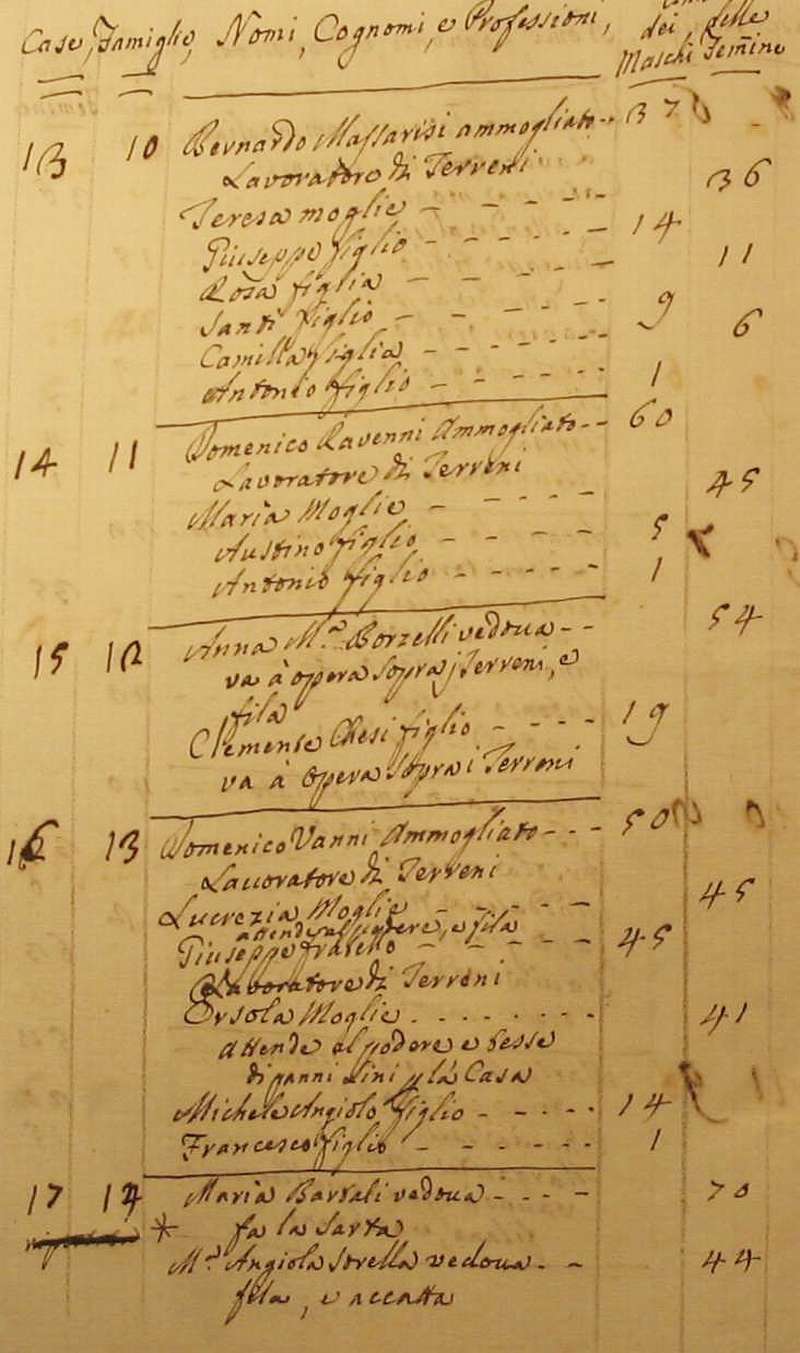 Case, Famiglie, Nomi, Cognomi, e Professioni, dei Maschi delle Femine
13 10 Bernardo Massarisi ammogliato 37
Lavoratore di Terreni
Teresa moglie 36
Giuseppe figlio 14
Rosa figlia 11
Santi figlio 9
Camilla figlia 6
Antonio figlio 1
14 11 Domenico Ravenni Ammogliato 60
Lavoratore di Terreni
Maria Moglie 45
Austino figlio 5
Antonio figlio 1
15 12 Anna M.ª Borzelli vedova 54
va à opera sopra j Terreni, e
fila
Clemente Chesi figlio 19
va à opera sopra i Terreni
16 13 Domenico Vanni Ammogliato 50
Lavoratore di Terreni
Lucrezia Moglie 45
attende al podere, e fila
Giuseppe fratello 45
Lavoratore di Terreni
Orsola Moglie 41
attende al podere e tesse
di panni lini p la Casa
Michele Angiolo figlio 14
Francesco figlio 1
17 14 Maria Bartali vedova 70
* fa la Sarta
M.ª Angiola vedova 44
fila, e accatta